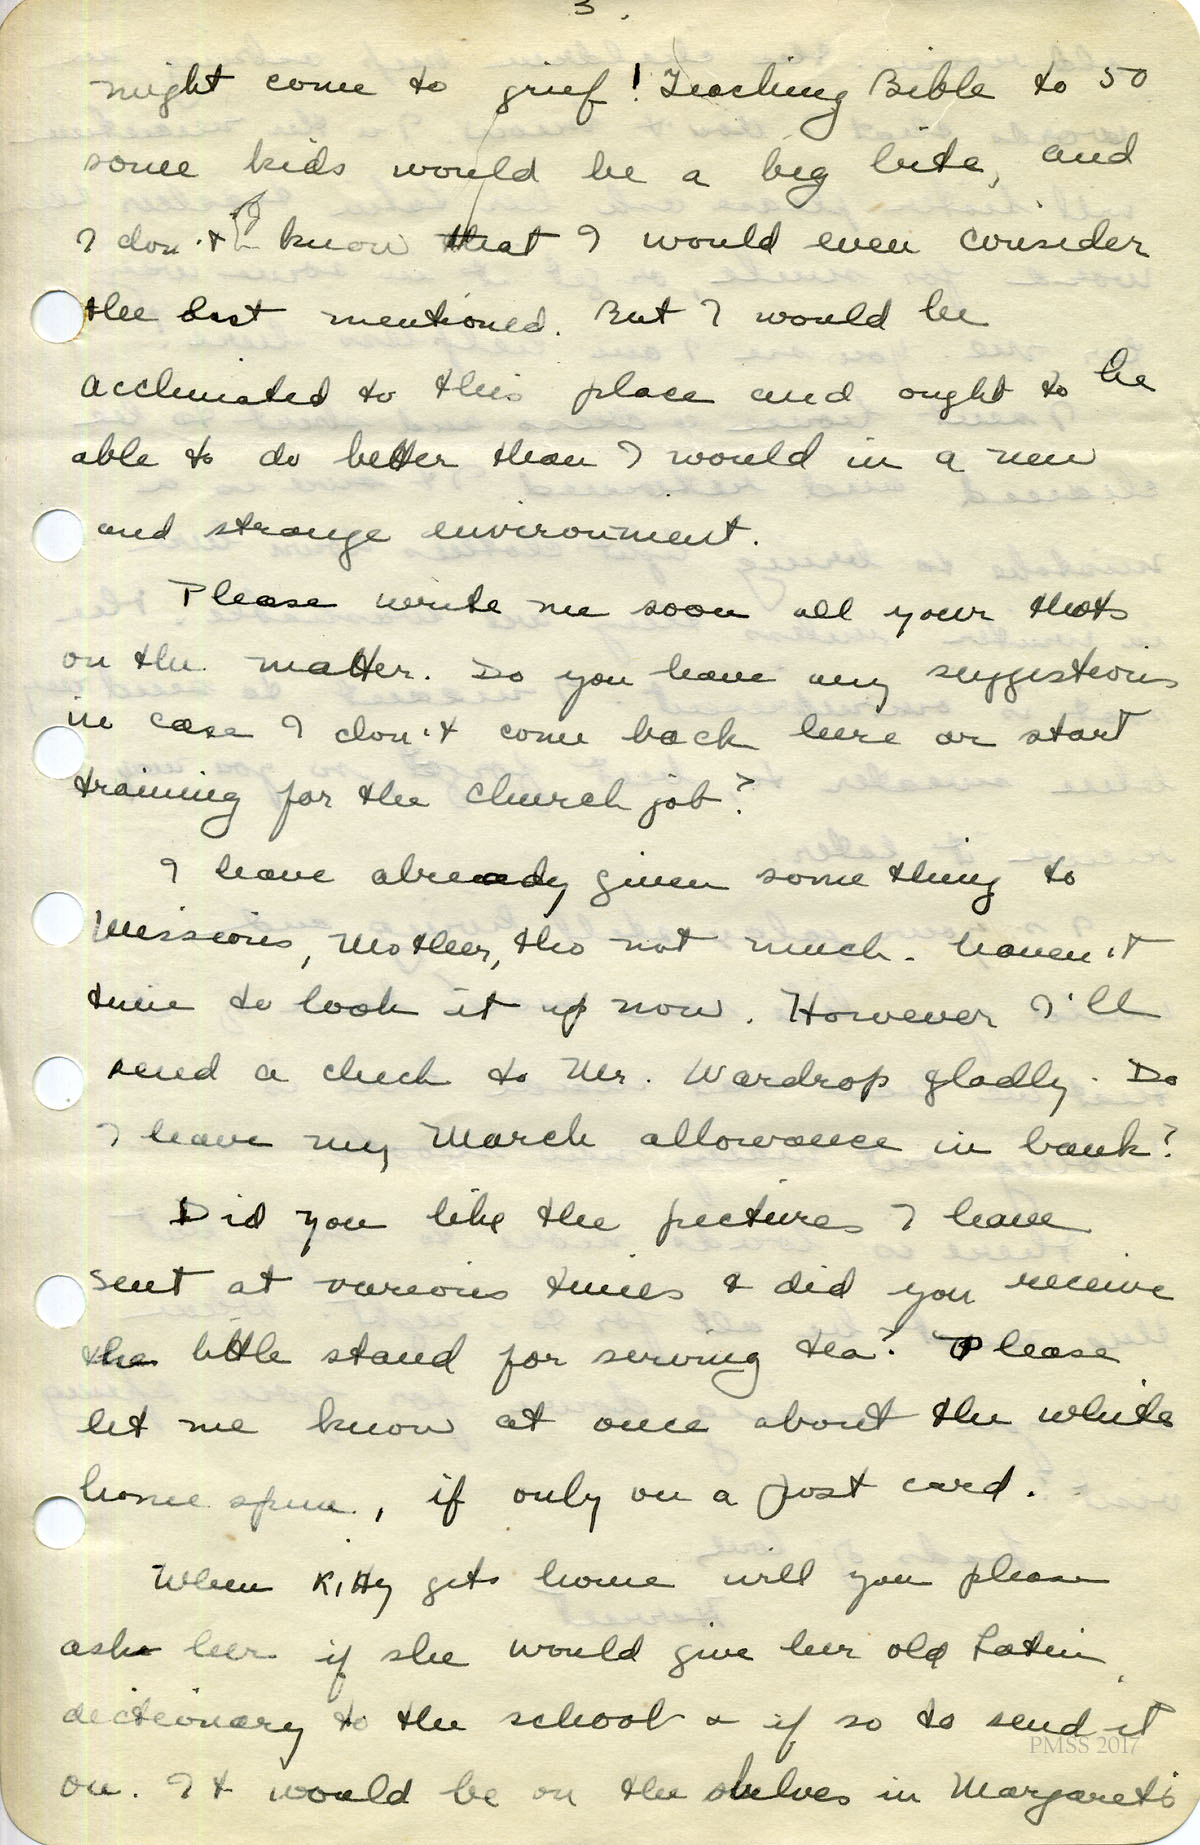 3.
might come to grief! Teaching Bible to 50
some kids would be a big bite, and
I don't know that I would even consider
the last mentioned. But I would be
acclimated to this place and ought to be
able to do better than I would in a new
and strange environment.
Please write me soon all your thots
on the matter. Do you have any suggestions
in case I don't come back here or start
training for the church job?
I have already given some thing to
Missions, Mother, tho not much. haven't
time to look it up now. However I'll
send a check to Mr. Wardrop gladly. Do
I have my March allowance in bank?
Did you like the pictures I have
sent at various times & did you receive
the little stand for serving tea? Please
let me know at once about the white
home spun, if only on a post card.
When Kitty gets home will you please
ask her if she would give her old Latin
dictionary to the school & if so to send it
on. It would be on the shelves in Margaret's
PMSS 2017